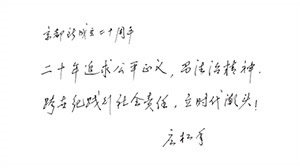 京都所成立二十周年
二十年追求公平正义，弘法治精神，
跨世纪践行社会责任，立时代潮头！